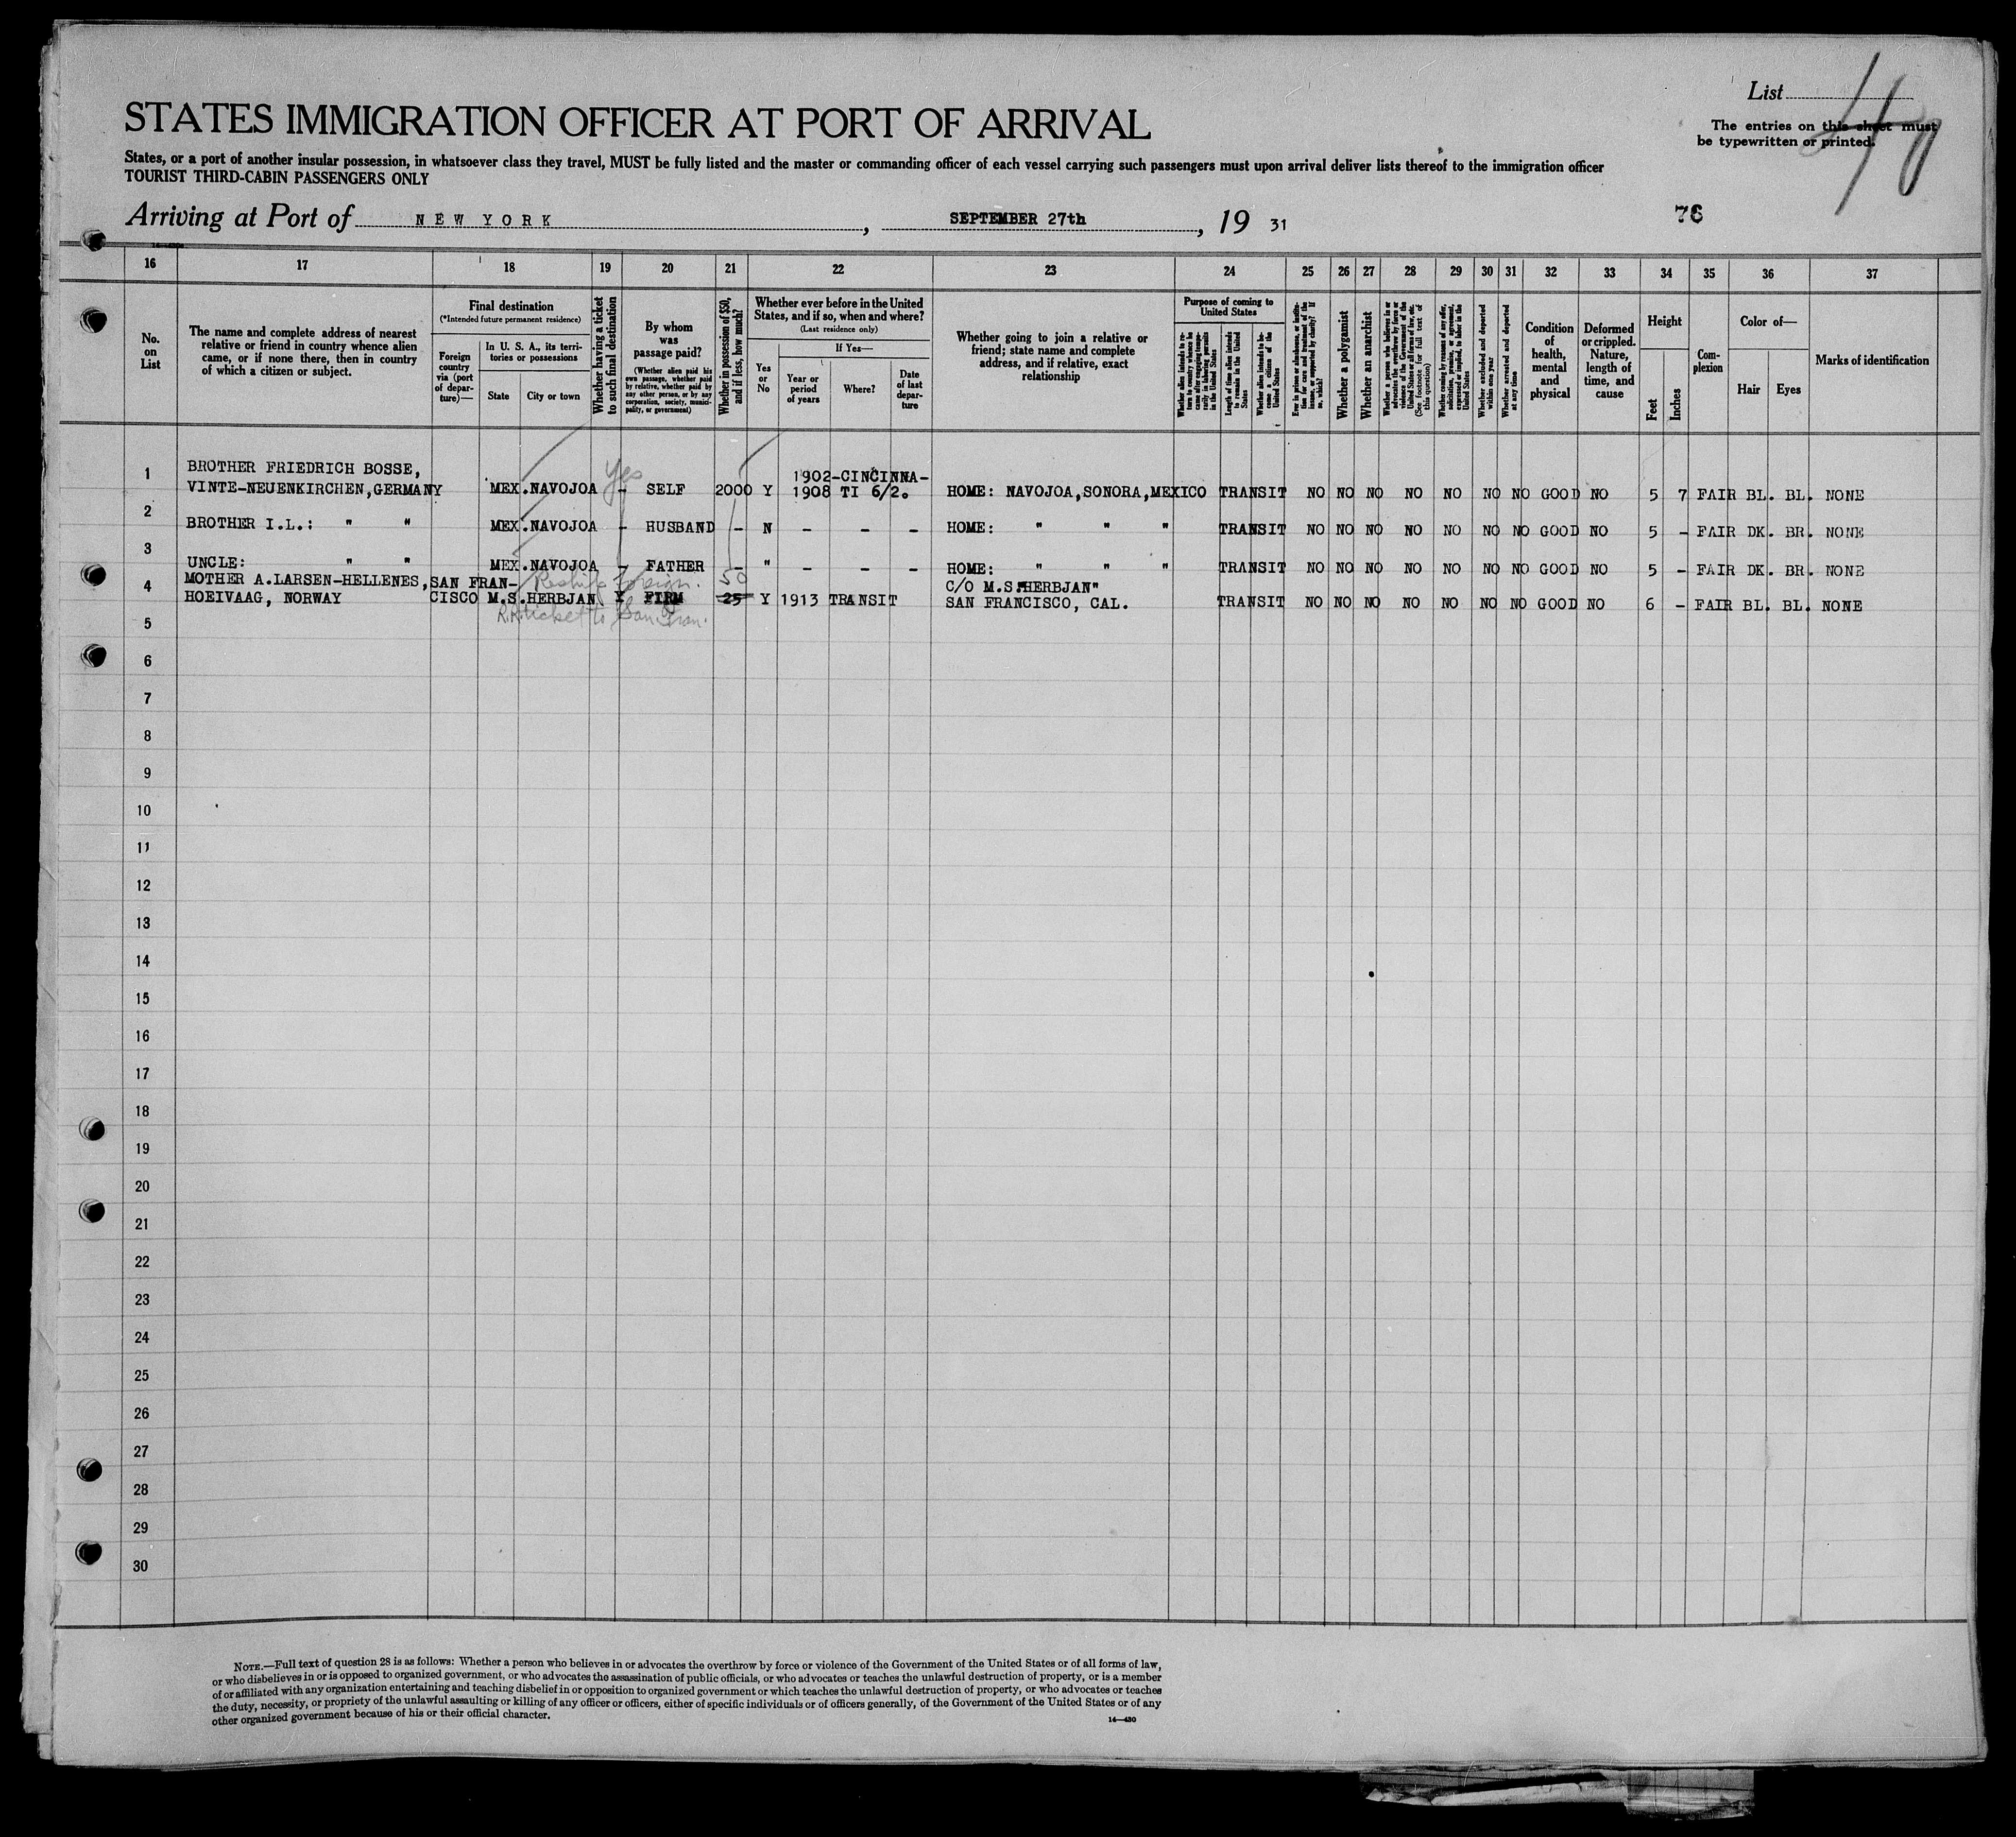 List
40
The entries on this sheet must
be typewritten or printed.
STATES IMMIGRATION OFFICER AT PORT OF ARRIVAL
States, or a port of another insular possession, in whatsoever class they travel, MUST be fully listed and the master or commanding officer of each vessel carrying such passengers must upon arrival deliver lists thereof to the immigration officer
TOURIST THIRD-CABIN PASSENGERS ONLY
Arriving at Port of NEW YORK, SEPTEMBER 27th, 19 31
76
16 17 18 19 20 21 22 23 24 25 26 27 28 29 30 31 32 33 34 35 36 37
No. on List
The name and complete address of nearest relative or friend in country whence alien came, or if none there, then in country of which a citizen or subject.
Final destination
(*Intended future permanent residence)
Foreign country via (port of departure)—
In U. S. A., its territories or possessions
State
City or town
Whether having a ticket to such final destination
By whom was passage paid?
(Whether alien paid his own passage, whether paid by relative, whether paid by any other person, or by any corporation, society, municipality, or government)
Whether in possession of $50, and if less, how much?
Whether ever before in the United States, and if so, when and where?
(Last residence only)
Yes or No
If Yes—
Year or period of years
Where?
Date of last departure
Whether going to join a relative or friend; state name and complete address, and if relative, exact relationship
Purpose of coming to United States
Whether alien intends to return to country whence he came after engaging temporarily in laboring pursuits in the United States
Length of time alien intends to remain in the United States
Whether alien intends to become a citizen of the United States
Ever in prison or almshouse, or institution for care and treatment of the insane, or supported by charity? If so, which?
Whether a polygamist
Whether an anarchist
Whether a person who believes in or advocates the overthrow by force or violence of the Government of the United States or all forms of law, etc. (See footnote for full text of this question)
Whether coming by reason of any offer, solicitation, promise, or agreement, expressed or implied, to labor in the United States
Whether excluded and deported within one year
Whether arrested and deported at any time
Condition of health, mental and physical
Deformed or crippled. Nature, length of time, and cause
Height
Feet
Inches
Complexion
Color of—
Hair
Eyes
Marks of identification
1 BROTHER FRIEDRICH BOSSE,
VINTE-NEUENKIRCHEN,GERMANY MEX.NAVOJOA Yes - SELF 2000 Y 1902-CINCINNA-
1908 TI 6/2. HOME: NAVOJOA,SONORA,MEXICO TRANSIT NO NO NO NO NO NO NO GOOD NO 5 7 FAIR BL. BL. NONE
2 BROTHER I.L.: " " MEX.NAVOJOA - HUSBAND - N - - - HOME: " " " TRANSIT NO NO NO NO NO NO NO GOOD NO 5 - FAIR DK. BR. NONE
3 UNCLE: " " MEX.NAVOJOA - FATHER - " - - - HOME: " " " TRANSIT NO NO NO NO NO NO NO GOOD NO 5 - FAIR DK. BR. NONE
4 MOTHER A.LARSEN-HELLENES, SAN FRAN- Reship foreign. 50 C/O M.S."HERBJAN"
HOEIVAAG, NORWAY CISCO M.S.HERBJAN Y FIRM 25 Y 1913 TRANSIT SAN FRANCISCO, CAL. TRANSIT NO NO NO NO NO NO NO GOOD NO 6 - FAIR BL. BL. NONE
R.R. ticket to San Fran.
5
6
7
8
9
10
11
12
13
14
15
16
17
18
19
20
21
22
23
24
25
26
27
28
29
30
NOTE.—Full text of question 28 is as follows: Whether a person who believes in or advocates the overthrow by force or violence of the Government of the United States or of all forms of law,
or who disbelieves in or is opposed to organized government, or who advocates the assassination of public officials, or who advocates or teaches the unlawful destruction of property, or is a member
of or affiliated with any organization entertaining and teaching disbelief in or opposition to organized government or which teaches the unlawful destruction of property, or who advocates or teaches
the duty, necessity, or propriety of the unlawful assaulting or killing of any officer or officers, either of specific individuals or of officers generally, of the Government of the United States or of any
other organized government because of his or their official character.
14—430